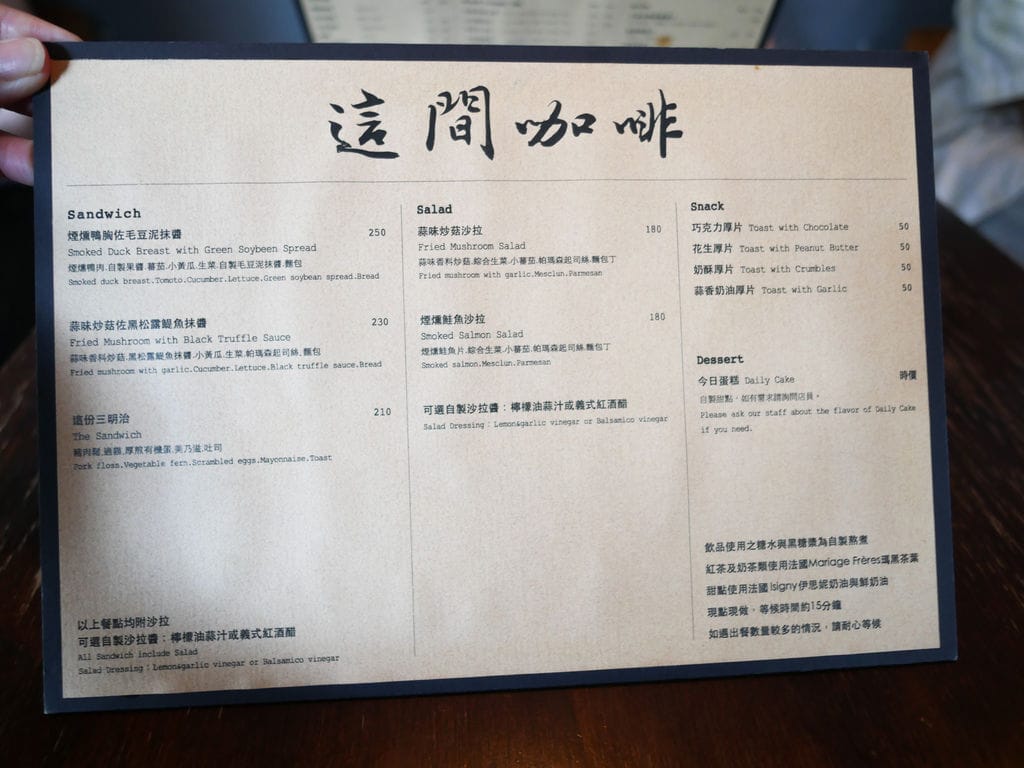 這間咖啡
Sandwich
煙燻鴨胸佐毛豆泥抹醬 250
Smoked Duck Breast with Green Soybeen Spread
煙燻鴨肉.自製果醬.蕃茄.小黃瓜.生菜.自製毛豆泥抹醬.麵包
Smoked duck breast.Tomoto.Cucumber.Lettuce.Green soybean spread.Bread
蒜味炒菇佐黑松露鯷魚抹醬 230
Fried Mushroom with Black Truffle Sauce
蒜味香料炒菇.黑松露鯷魚抹醬.小黃瓜.生菜.帕瑪森起司絲.麵包
Fried mushroom with garlic.Cucumber.Lettuce.Black truffle sauce.Bread
這份三明治 210
The Sandwich
豬肉鬆.過貓.厚煎有機蛋.美乃滋.吐司
Pork floss.Vegetable fern.Scrambled eggs.Mayonnaise.Toast
以上餐點均附沙拉
可選自製沙拉醬：檸檬油蒜汁或義式紅酒醋
All Sandwich include Salad
Salad Dressing：Lemon&garlic vinegar or Balsamico vinegar
Salad
蒜味炒菇沙拉 180
Fried Mushroom Salad
蒜味香料炒菇.綜合生菜.小蕃茄.帕瑪森起司絲.麵包丁
Fried mushroom with garlic.Mesclun.Parmesan
煙燻鮭魚沙拉 180
Smoked Salmon Salad
煙燻鮭魚片.綜合生菜.小蕃茄.帕瑪森起司絲.麵包丁
Smoked salmon.Mesclun.Parmesan
可選自製沙拉醬：檸檬油蒜汁或義式紅酒醋
Salad Dressing：Lemon&garlic vinegar or Balsamico vinegar
Snack
巧克力厚片 Toast with Chocolate 50
花生厚片 Toast with Peanut Butter 50
奶酥厚片 Toast with Crumbles 50
蒜香奶油厚片 Toast with Garlic 50
Dessert
今日蛋糕 Daily Cake 時價
自製甜點，如有需求請詢問店員。
Please ask our staff about the flavor of Daily Cake
if you need.
飲品使用之糖水與黑糖漿為自製熬煮
紅茶及奶茶類使用法國Mariage Frères瑪黑茶葉
甜點使用法國 Isigny伊思妮奶油與鮮奶油
現點現做，等候時間約15分鐘
如遇出餐數量較多的情況，請耐心等候